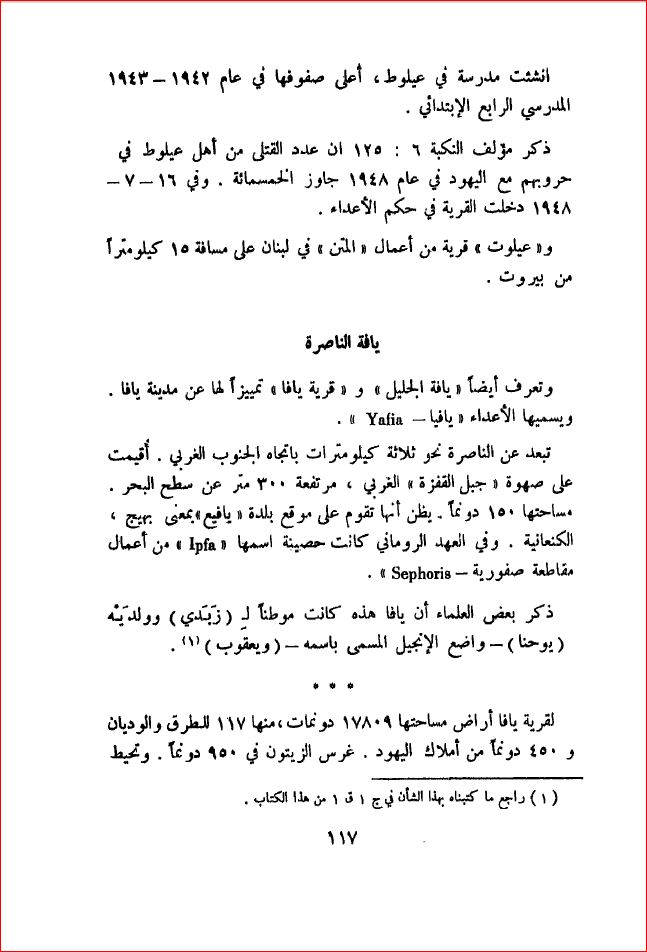 انشئت مدرسة في عيلوط، أعلى صفوفها في عام ١٩٤٢ – ١٩٤٣
المدرسي الرابع الإبتدائي .
ذكر مؤلف النكبة ٦ : ١٢٥ ان عدد القتلى من أهل عيلوط في
حروبهم مع اليهود في عام ١٩٤٨ جاوز الخمسمائة . وفي ١٦ – ٧ –
١٩٤٨ دخلت القرية في حكم الأعداء .
و« عيلوت » قرية من أعمال « المتن » في لبنان على مسافة ١٥ كيلومتراً
من بيروت .
يافة الناصرة
وتعرف أيضاً « يافة الجليل » و « قرية يافا » تمييزاً لها عن مدينة يافا .
ويسميها الأعداء « يافيا – Yafia » .
تبعد عن الناصرة نحو ثلاثة كيلومترات باتجاه الجنوب الغربي . أُقيمت
على صهوة « جبل القفزة » الغربي ، مرتفعة ٣٠٠ متر عن سطح البحر .
مساحتها ١٥٠ دونماً . يظن أنها تقوم على موقع بلدة « يافيع » بمعنى بهيج ،
الكنعانية . وفي العهد الروماني كانت حصينة اسمها « Ipfa » من أعمال
مقاطعة صفورية – Sephoris » .
ذكر بعض العلماء أن يافا هذه كانت موطناً لـِ ( زَبَدي ) وولدَيْه
( يوحنا ) – واضع الإنجيل المسمى باسمه – ( ويعقوب ) (١) .
* * *
لقرية يافا أراض مساحتها ١٧٨٠٩ دونمات ، منها ١١٧ للطرق والوديان
و ٤٥٠ دونماً من أملاك اليهود . غرس الزيتون في ٩٥٠ دونماً . وتحيط
( ١ ) راجع ما كتبناه بهذا الشأن في ج ١ ق ١ من هذا الكتاب .
١١٧